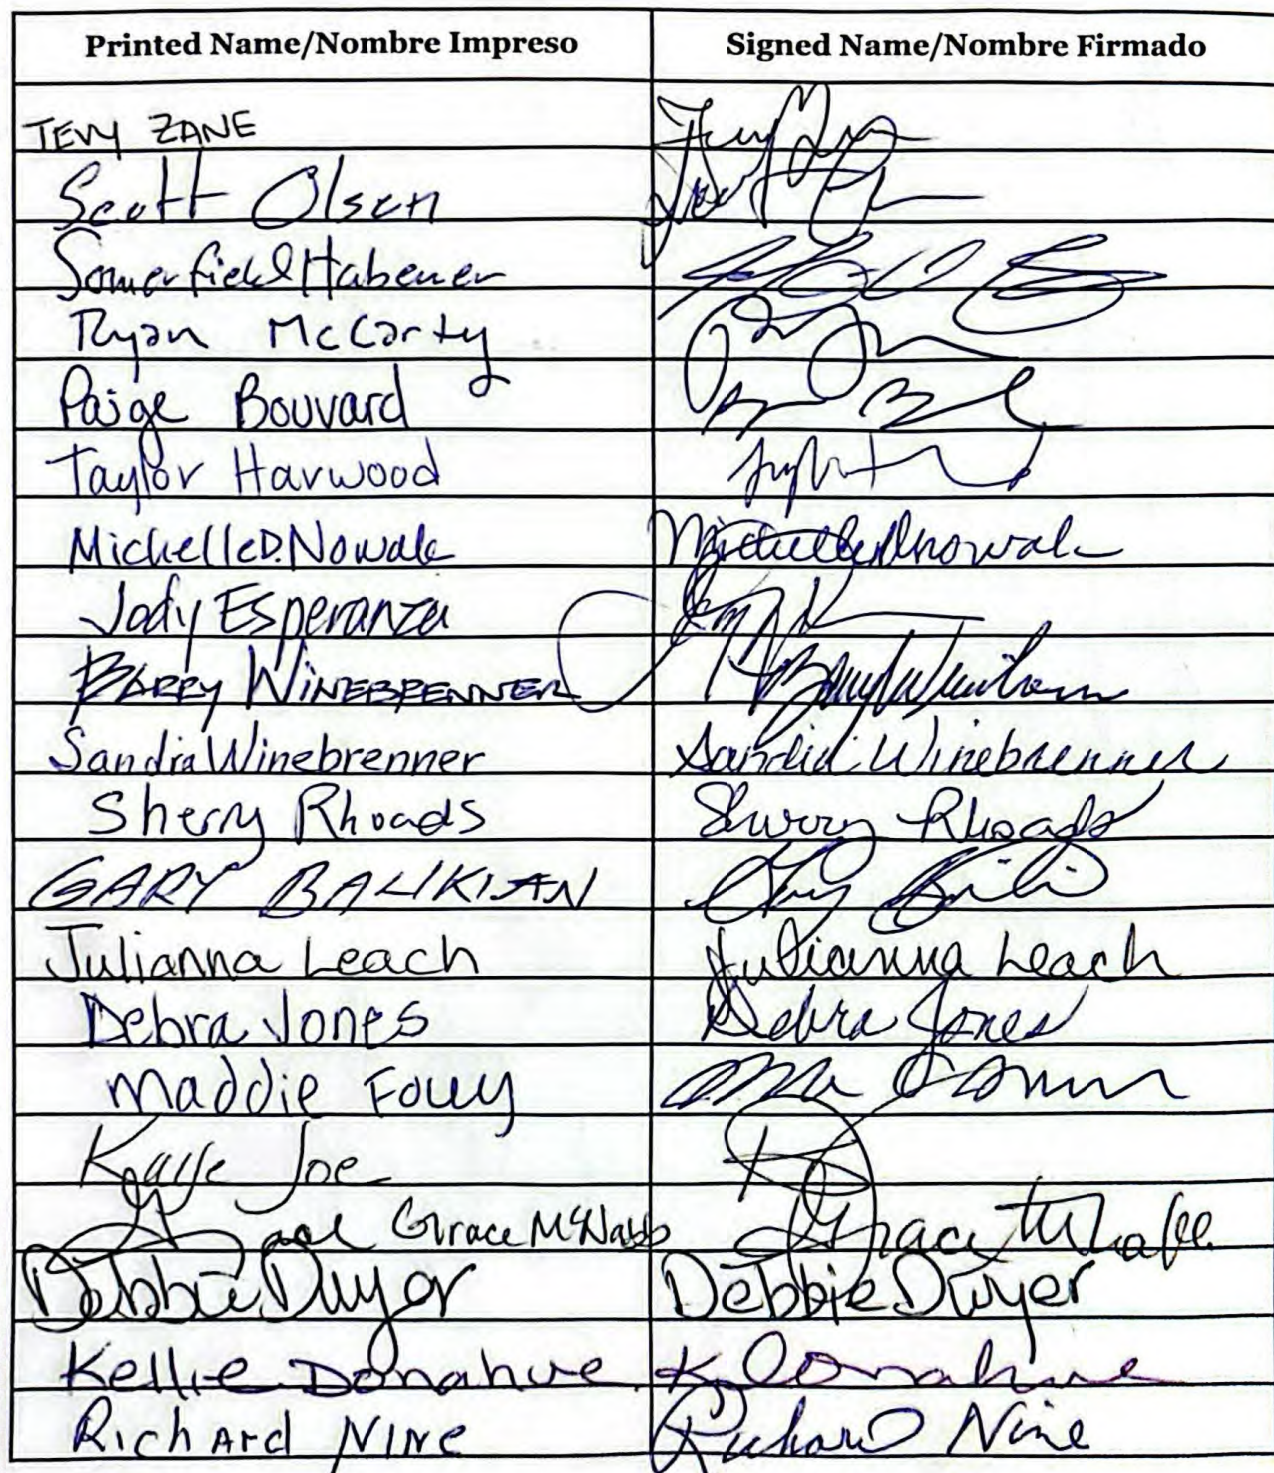 Printed Name/Nombre Impreso Signed Name/Nombre Firmado
TEVY ZANE
Scott Olsen
Somerfield Habener
Ryan McCarty
Paige Bouvard
Taylor Harwood
Michelle D. Nowak Michelle D Nowak
Jody Esperanza
BARRY WINEBRENNER Barry
Sandra Winebrenner Sandra Winebrenner
Sherry Rhoads Sherry Rhoads
GARY BALIKIAN Gary
Julianna Leach Julianna Leach
Debra Jones Debra Jones
Maddie
Joe
Grace McNabb Grace
Debbie Dwyer Debbie Dwyer
Kellie Donahue K Donahue
Richard Nine Richard Nine